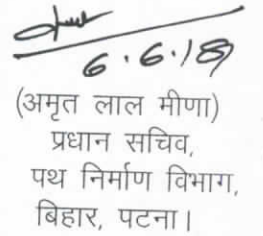 6.6.18
(अमृत लाल मीणा)
प्रधान सचिव,
पथ निर्माण विभाग,
बिहार, पटना।